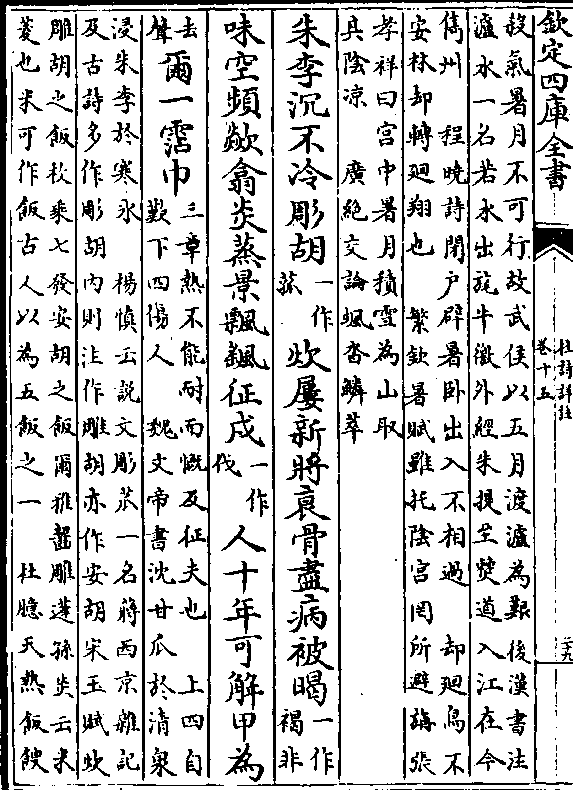 欽定四庫全書
杜詩詳註
卷十五
二十九
殺氣暑月不可行故武侯以五月渡瀘為艱後漢書注
瀘水一名若水出旄牛徼外經朱提至僰道入江在今
雋州　程曉詩閉户辟暑卧出入不相過　却廻鳥不
安林却轉廻翔也　繁欽暑賦雖托陰宮罔所避　張
孝祥曰宮中暑月積雪為山取
其陰凉　廣絶交論颯沓鱗萃
朱李沉不冷彫胡一作菰炊屢新將衰骨盡病被暍一作褐非
味空頻歘翕炎蒸景飄颻征戍一作伐人十年可解甲為
去聲爾一霑巾三章熱不能耐而慨及征夫也　上四自
歎下四傷人　魏文帝書沈甘瓜於清泉
浸朱李於寒氷　楊慎云説文彫苽一名蔣西京雜記
及古詩多作彫胡内則注作雕胡亦作安胡宋玉賦炊
雕胡之飯枚乘七發安胡之飯爾雅齧雕蓬孫炎云米
茭也米可作飯古人以為五飯之一　杜臆天熱飯餿